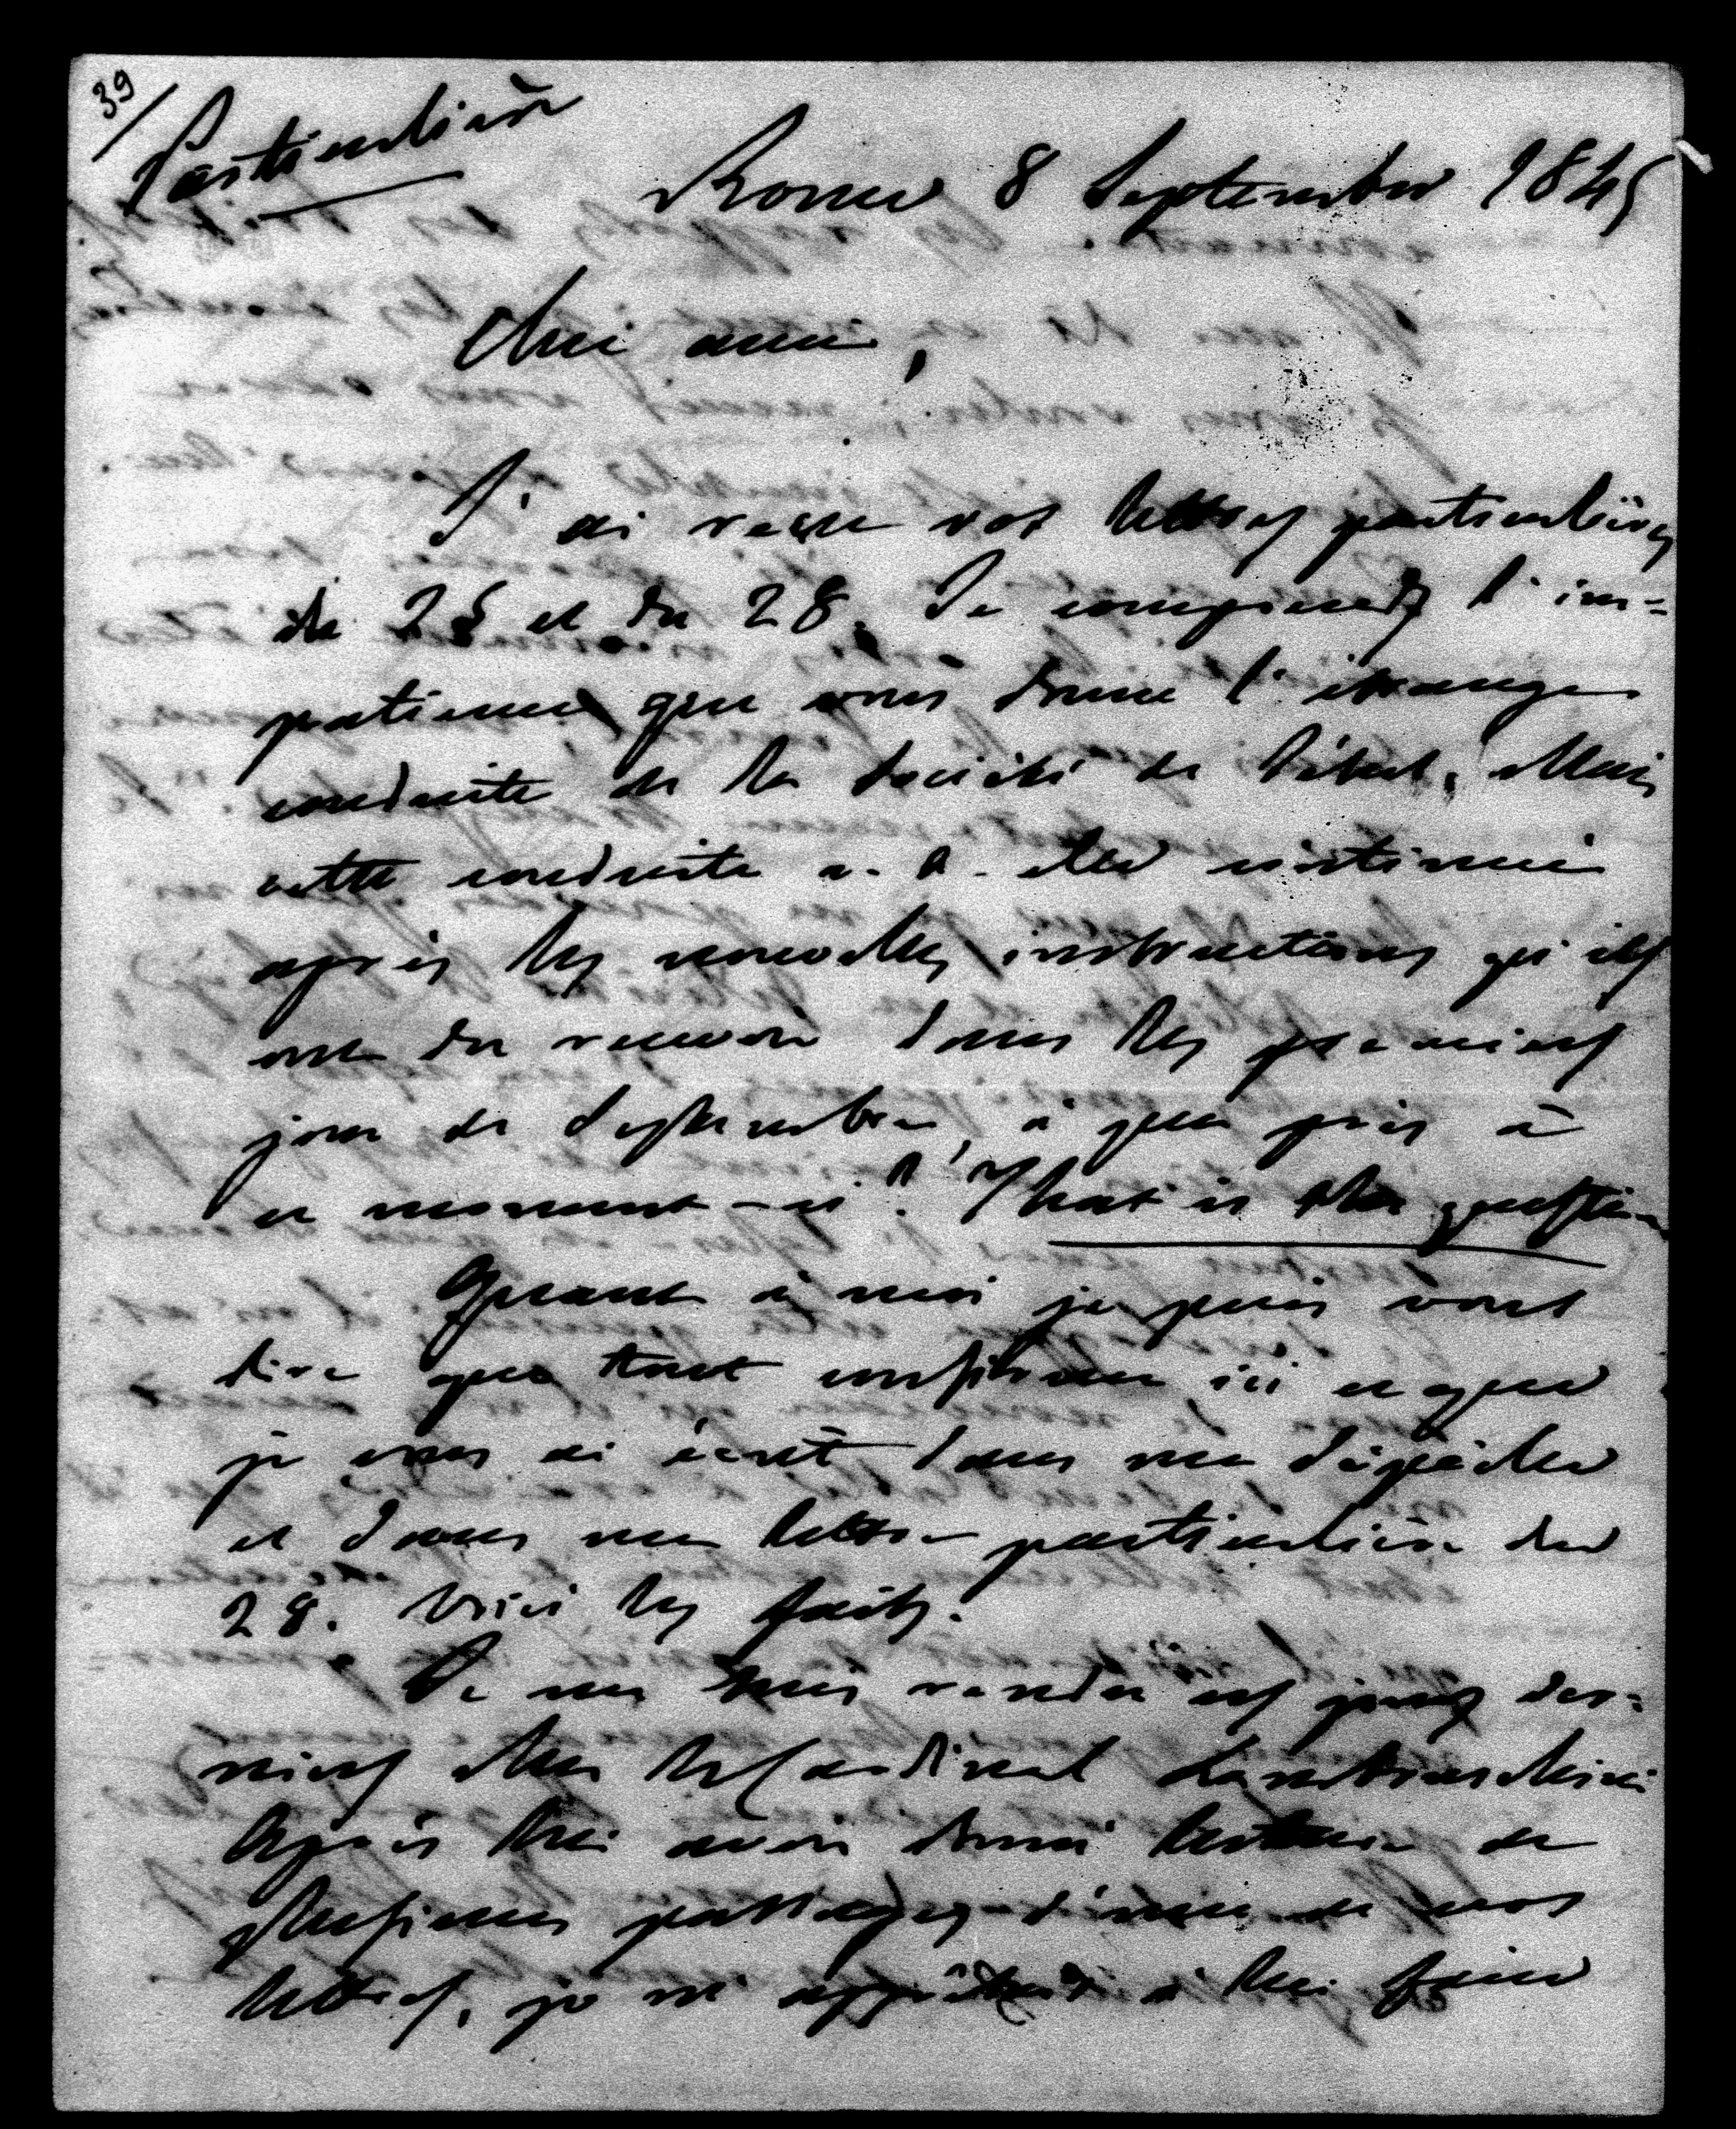 39/
Particulière
Rome 8 Septembre 1845
Cher ami,
J'ai reçu vos lettres particulières
du 25 et du 28. Je comprends l'im=
patience que vous donne l'étrange
conduite de la Société de Mais
cette conduite a-t-elle continué
après les nouvelles instructions qu'ils
ont du recevoir dans les premiers
jours de Septembre, à peu près à
ce moment-ci? That is the question
Quant à moi je puis vous
dire que tout confirme ici ce que
je vous ai écrit dans ma dépêche
et dans ma lettre particulière du
28. Voici les faits.
Je me suis rendu ces jours der=
niers chez le Cardinal Lambruschini
Après lui avoir donné lecture de
plusieurs passages d'une de vos
lettres, je m'apprêtais à lui faire